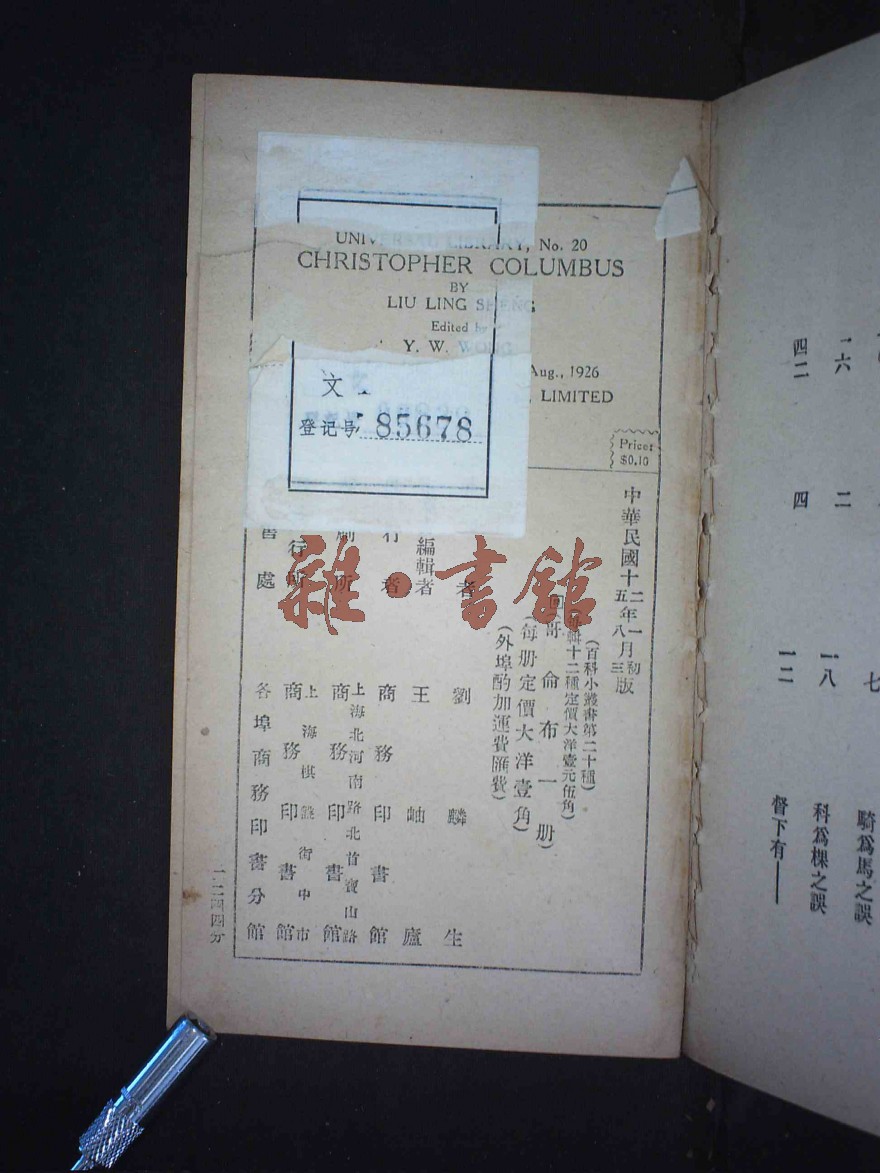 UNIVERSAL LIBRARY, No. 20
CHRISTOPHER COLUMBUS
BY
LIU LING SHENG
Edited by
Y. W. WONG
Aug., 1926
, LIMITED
Price:
$0.10
文
登记号 85678
中華民國十二年一月初版
五 八 三
(百科小叢書第二十種)
輯十二種定價大洋壹元伍角)
哥倫布一册)
(每册定價大洋壹角)
(外埠酌加運費匯費)
者 劉麟生
編輯者 王岫廬
行者 商務印書館
上海北河南路北首寶山路
刷所 商務印書館
上海棋盤街中市
行所 商務印書館
售處 各埠商務印書分館
一二四四分
雜·書館
騎爲馬之誤
七
一六
二
一八
科爲棵之誤
四二
四
一二
督下有——